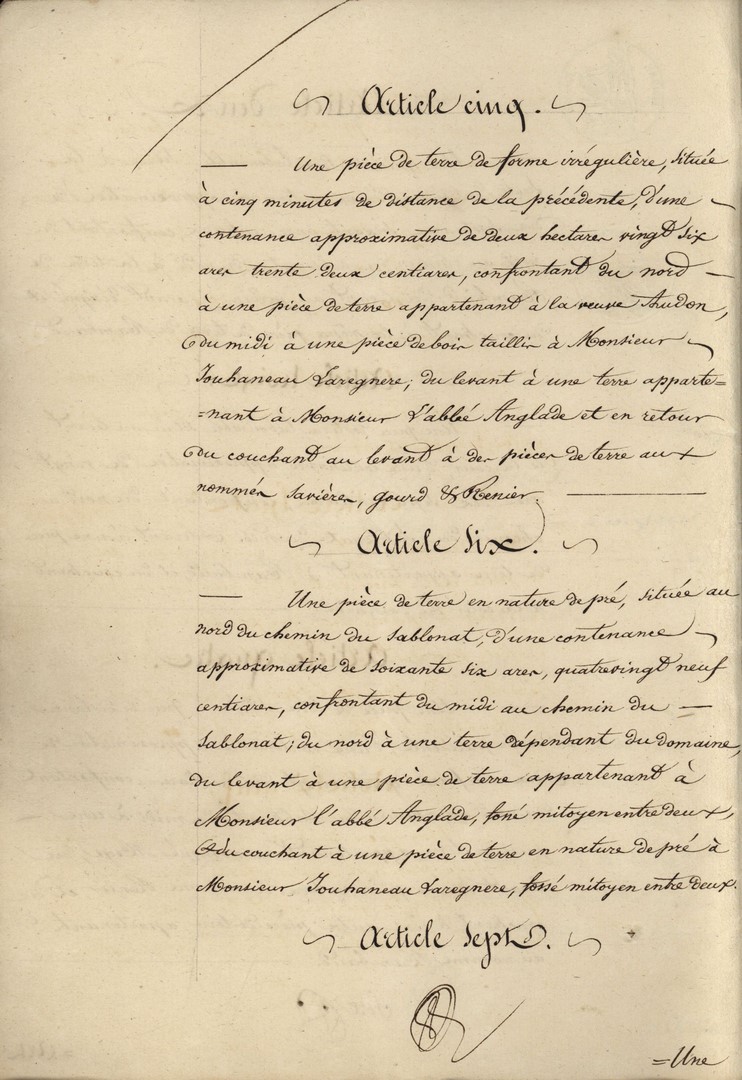 Article cinq.
Une pièce de terre de forme irrégulière, située
à cinq minutes de distance de la précédente, d'une
contenance approximative de deux hectares vingt six
ares trente deux centiares, confrontant du nord
à une pièce de terre appartenant à la veuve Audon,
du midi à une pièce de bois taillis à Monsieur
Jouhaneau Laregnere; du levant à une terre apparte=
=nant à Monsieur L'abbé Anglade et en retour
du couchant au levant à des pièces de terre aux
nommés Savières, Gourd & Renier.
Article Six.
Une pièce de terre en nature de pré, située au
nord du chemin du Sablonat, d'une contenance
approximative de soixante six ares, quatrevingt neuf
centiares, confrontant du midi au chemin du
Sablonat; du nord à une terre dépendant du domaine,
du levant à une pièce de terre appartenant à
Monsieur l'abbé Anglade, fossé mitoyen entre deux,
& du couchant à une pièce de terre en nature de pré à
Monsieur Jouhaneau Laregnere, fossé mitoyen entre deux.
Article Sept.
=Une